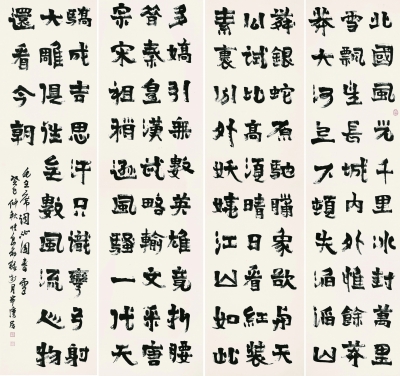 北國風光千里冰封萬里
雪飄望長城內外惟餘莽
莽大河上下頓失滔滔山
舞銀蛇原馳蠟象欲與天
公試比高須晴日看紅裝
素裹分外妖嬈江山如此
多嬌引無數英雄競折腰
惜秦皇漢武略輸文采唐
宗宋祖稍遜風騷一代天
驕成吉思汗只識彎弓射
大雕俱往矣數風流人物
還看今朝
毛主席詞沁園春雪
癸巳仲秋